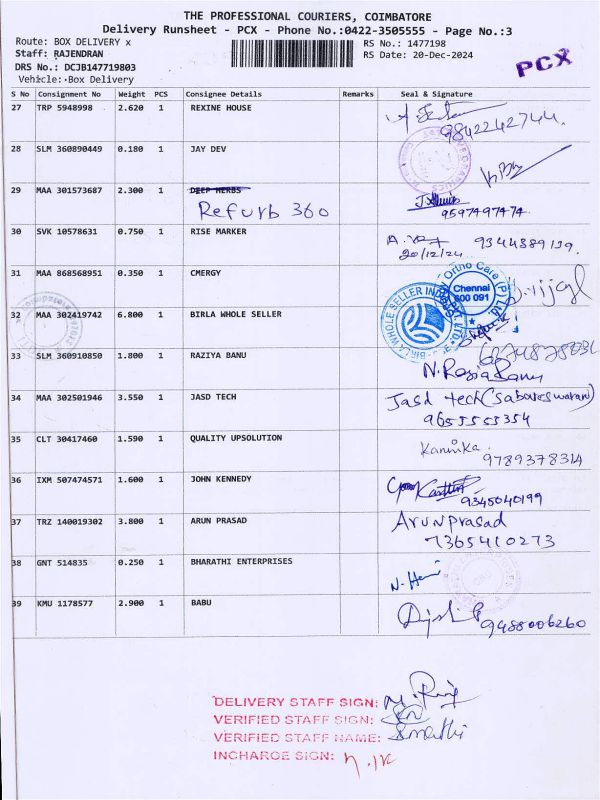 THE PROFESSIONAL COURIERS, COIMBATORE
Delivery Runsheet - PCX - Phone No.:0422-3505555 - Page No.:3
Route: BOX DELIVERY x
RS No.: 1477198
Staff: RAJENDRAN
RS Date: 20-Dec-2024
DRS No.: DCJB147719803
Vehicle: Box Delivery
PCX
S No Consignment No Weight PCS Consignee Details Remarks Seal & Signature
27 TRP 5948998 2.620 1 REXINE HOUSE
9842242744.
28 SLM 360890449 0.180 1 JAY DEV
29 MAA 301573687 2.300 1 DEEP HERBS
Refurb 360
9597497474
30 SVK 10578631 0.750 1 RISE MARKER
9344389139
20/12/24
31 MAA 868568951 0.350 1 CMERGY
Ortho Care (P) LTD
Chennai
600 091
32 MAA 302419742 6.800 1 BIRLA WHOLE SELLER
BIRLA WHOLE SELLER
33 SLM 360910850 1.800 1 RAZIYA BANU
N. Razia Banu
34 MAA 302501946 3.550 1 JASD TECH
Jasd tech (Sabareswaran)
9655555354
35 CLT 30417460 1.590 1 QUALITY UPSOLUTION
Kannika.
9789378314
36 IXM 507474571 1.600 1 JOHN KENNEDY
9345040199
37 TRZ 140019302 3.800 1 ARUN PRASAD
Arunprasad
7365410273
38 GNT 514835 0.250 1 BHARATHI ENTERPRISES
39 KMU 1178577 2.900 1 BABU
9488006260
DELIVERY STAFF SIGN:
VERIFIED STAFF SIGN:
VERIFIED STAFF NAME:
INCHARGE SIGN: